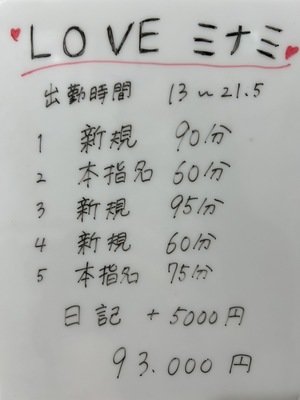 LOVE ミナミ
出勤時間 13〜21.5
1 新規 90分
2 本指名 60分
3 新規 95分
4 新規 60分
5 本指名 75分
日記 + 5000円
93.000円